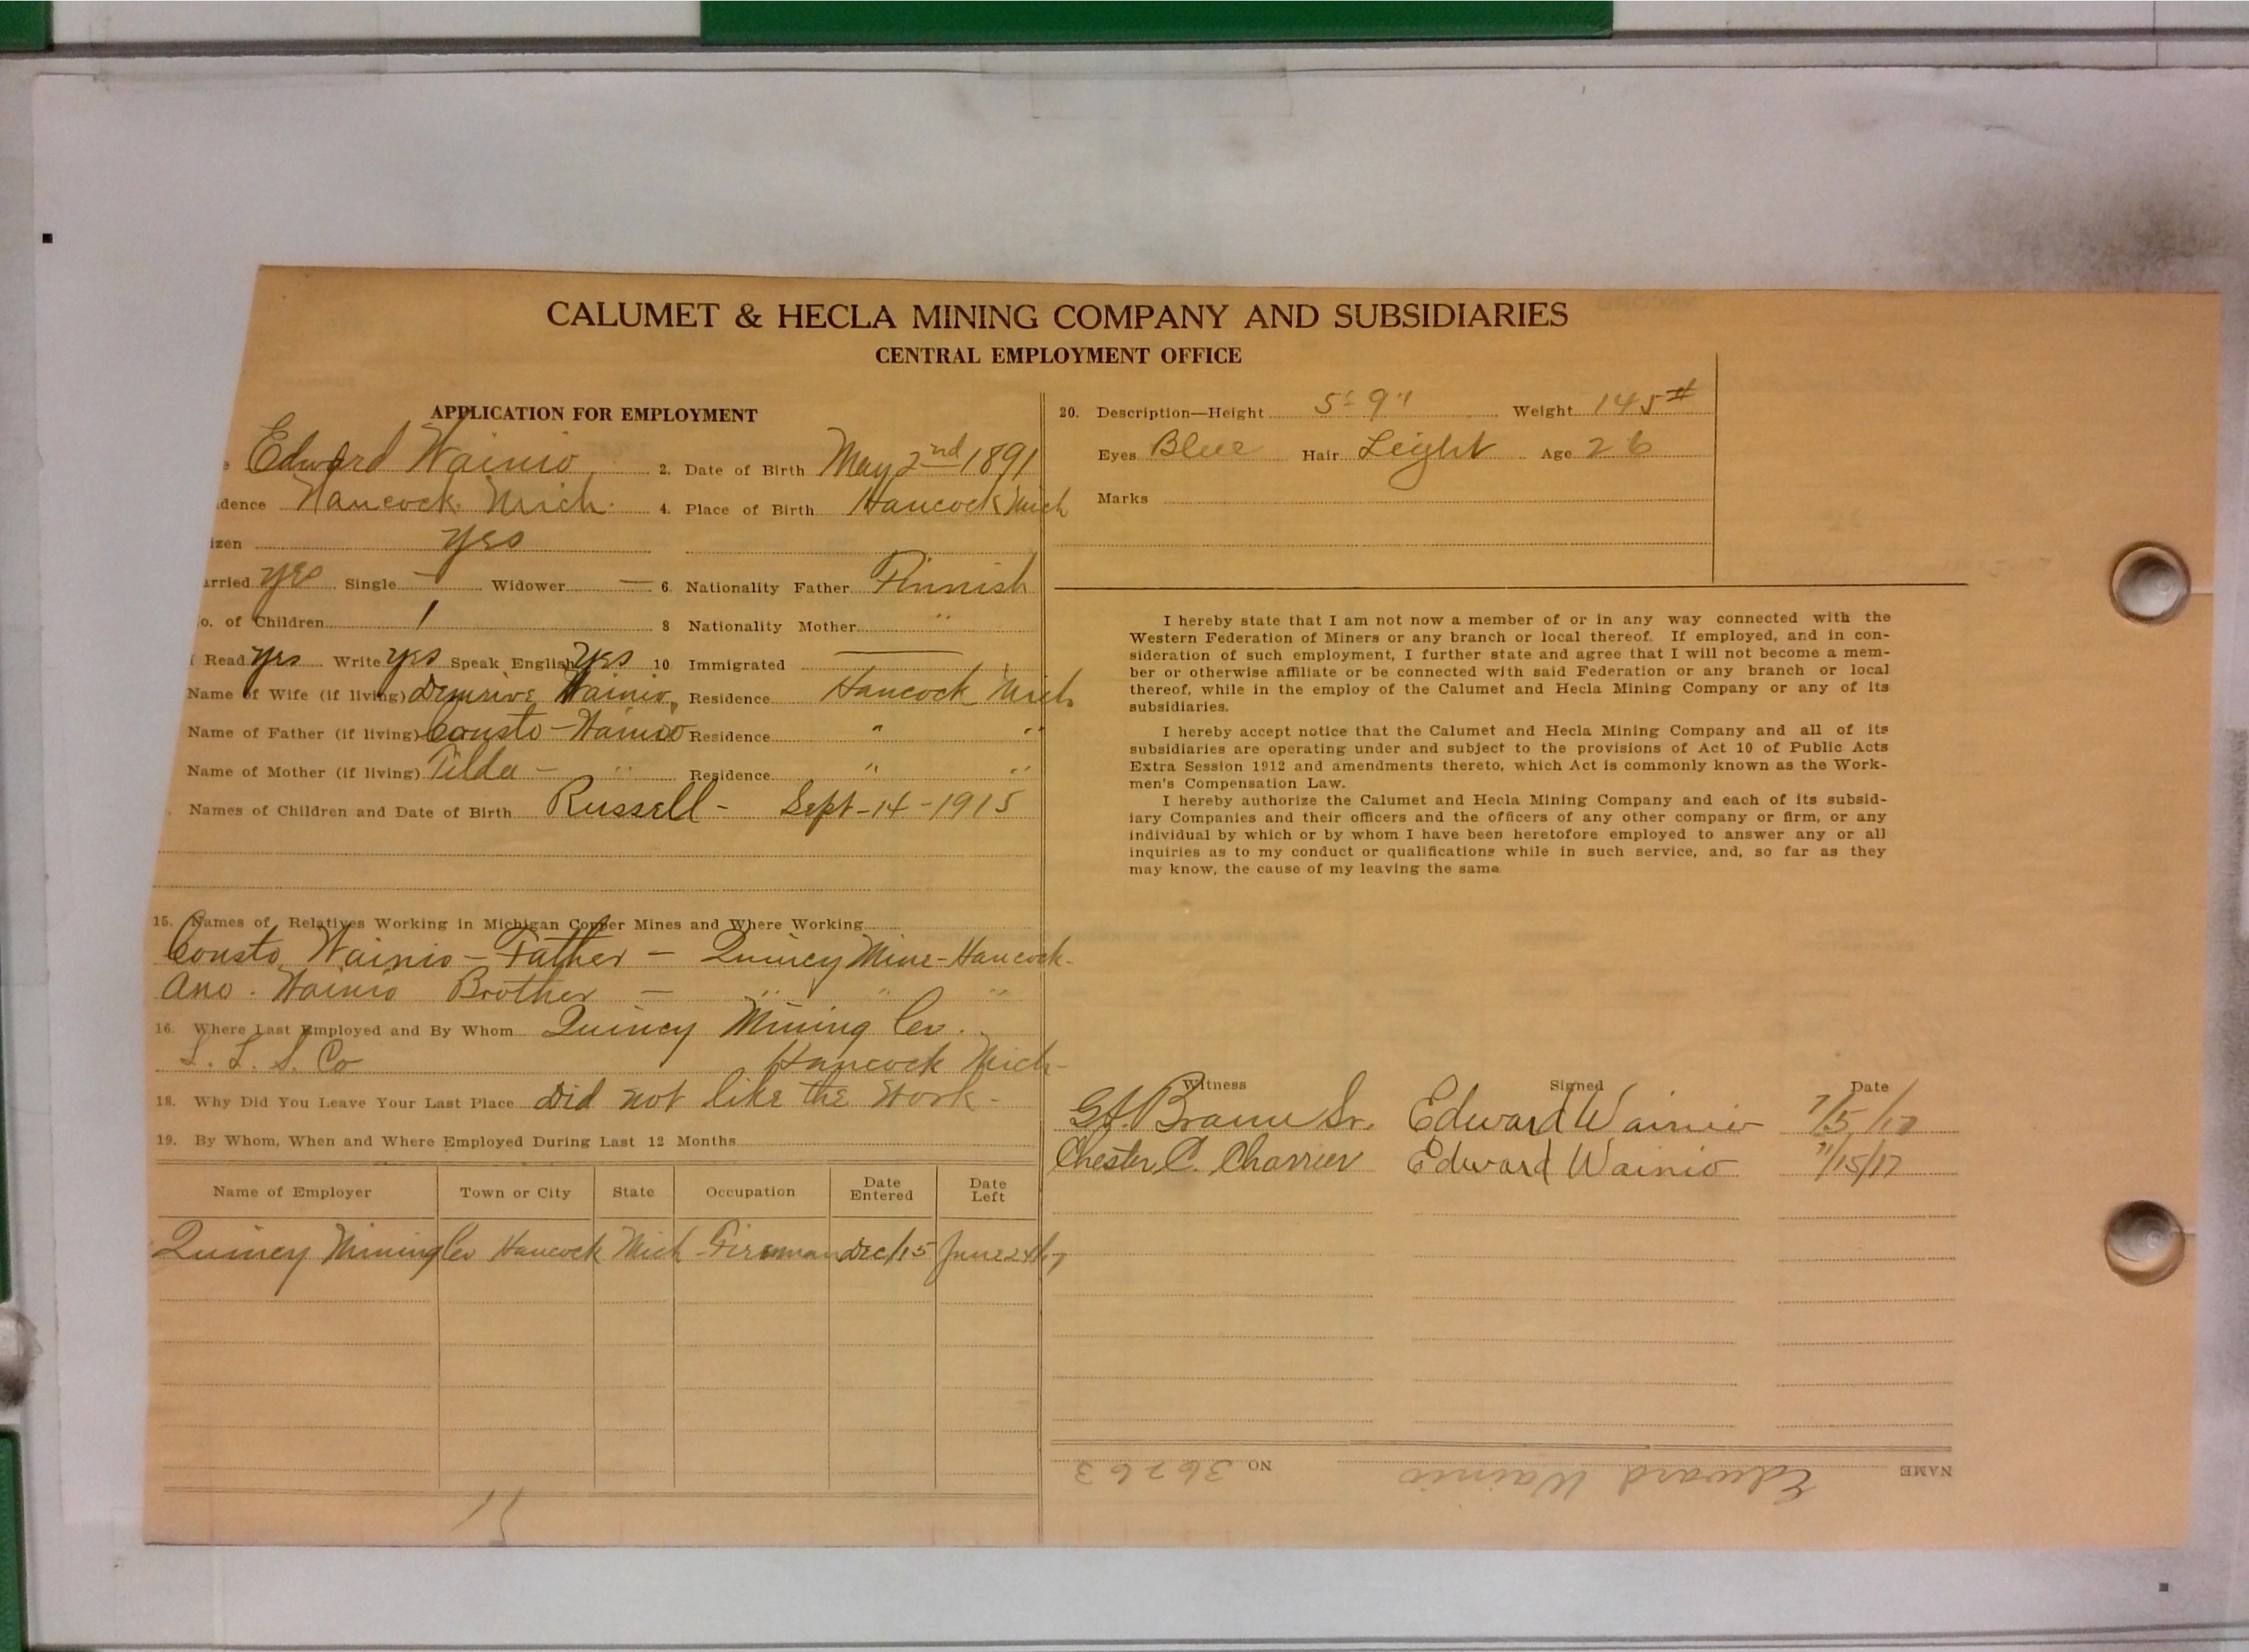 CALUMET & HECLA MINING COMPANY AND SUBSIDIARIES
CENTRAL EMPLOYMENT OFFICE
APPLICATION FOR EMPLOYMENT
e Edward Wainio 2. Date of Birth May 2nd 1891
dence Hancock. Mich. 4. Place of Birth Hancock Mich
izen yes
arried yes Single — Widower — 6. Nationality Father Finnish
o. of Children 1 8 Nationality Mother "
Read yes Write yes Speak English yes 10 Immigrated —
Name of Wife (if living) Wainio, Residence Hancock Mich.
Name of Father (if living) Consto - Wainio Residence " "
Name of Mother (if living) Tilda - " Residence " "
Names of Children and Date of Birth Russell - Sept-14-1915
15. Names of Relatives Working in Michigan Copper Mines and Where Working
Consto Wainio - Father - Quincy Mine - Hancock -
Ano. Wainio Brother - " " "
16. Where Last Employed and By Whom Quincy Mining Co.
L. L. S. Co Hancock Mich -
18. Why Did You Leave Your Last Place Did not like the Work -
19. By Whom, When and Where Employed During Last 12 Months
Name of Employer Town or City State Occupation Date Entered Date Left
Quincy Mining Co Hancock Mich Fireman Dec/15 June 24/17
20. Description—Height 5' 9" Weight 145#
Eyes Blue Hair Leight Age 26
Marks
I hereby state that I am not now a member of or in any way connected with the
Western Federation of Miners or any branch or local thereof. If employed, and in con-
sideration of such employment, I further state and agree that I will not become a mem-
ber or otherwise affiliate or be connected with said Federation or any branch or local
thereof, while in the employ of the Calumet and Hecla Mining Company or any of its
subsidiaries.
I hereby accept notice that the Calumet and Hecla Mining Company and all of its
subsidiaries are operating under and subject to the provisions of Act 10 of Public Acts
Extra Session 1912 and amendments thereto, which Act is commonly known as the Work-
men's Compensation Law.
I hereby authorize the Calumet and Hecla Mining Company and each of its subsid-
iary Companies and their officers and the officers of any other company or firm, or any
individual by which or by whom I have been heretofore employed to answer any or all
inquiries as to my conduct or qualifications while in such service, and, so far as they
may know, the cause of my leaving the same
Witness Signed Date
Edward Wainio 7/5/17
Chester C. Charrier Edward Wainio 11/15/17
NAME Edward Wainio NO 36263